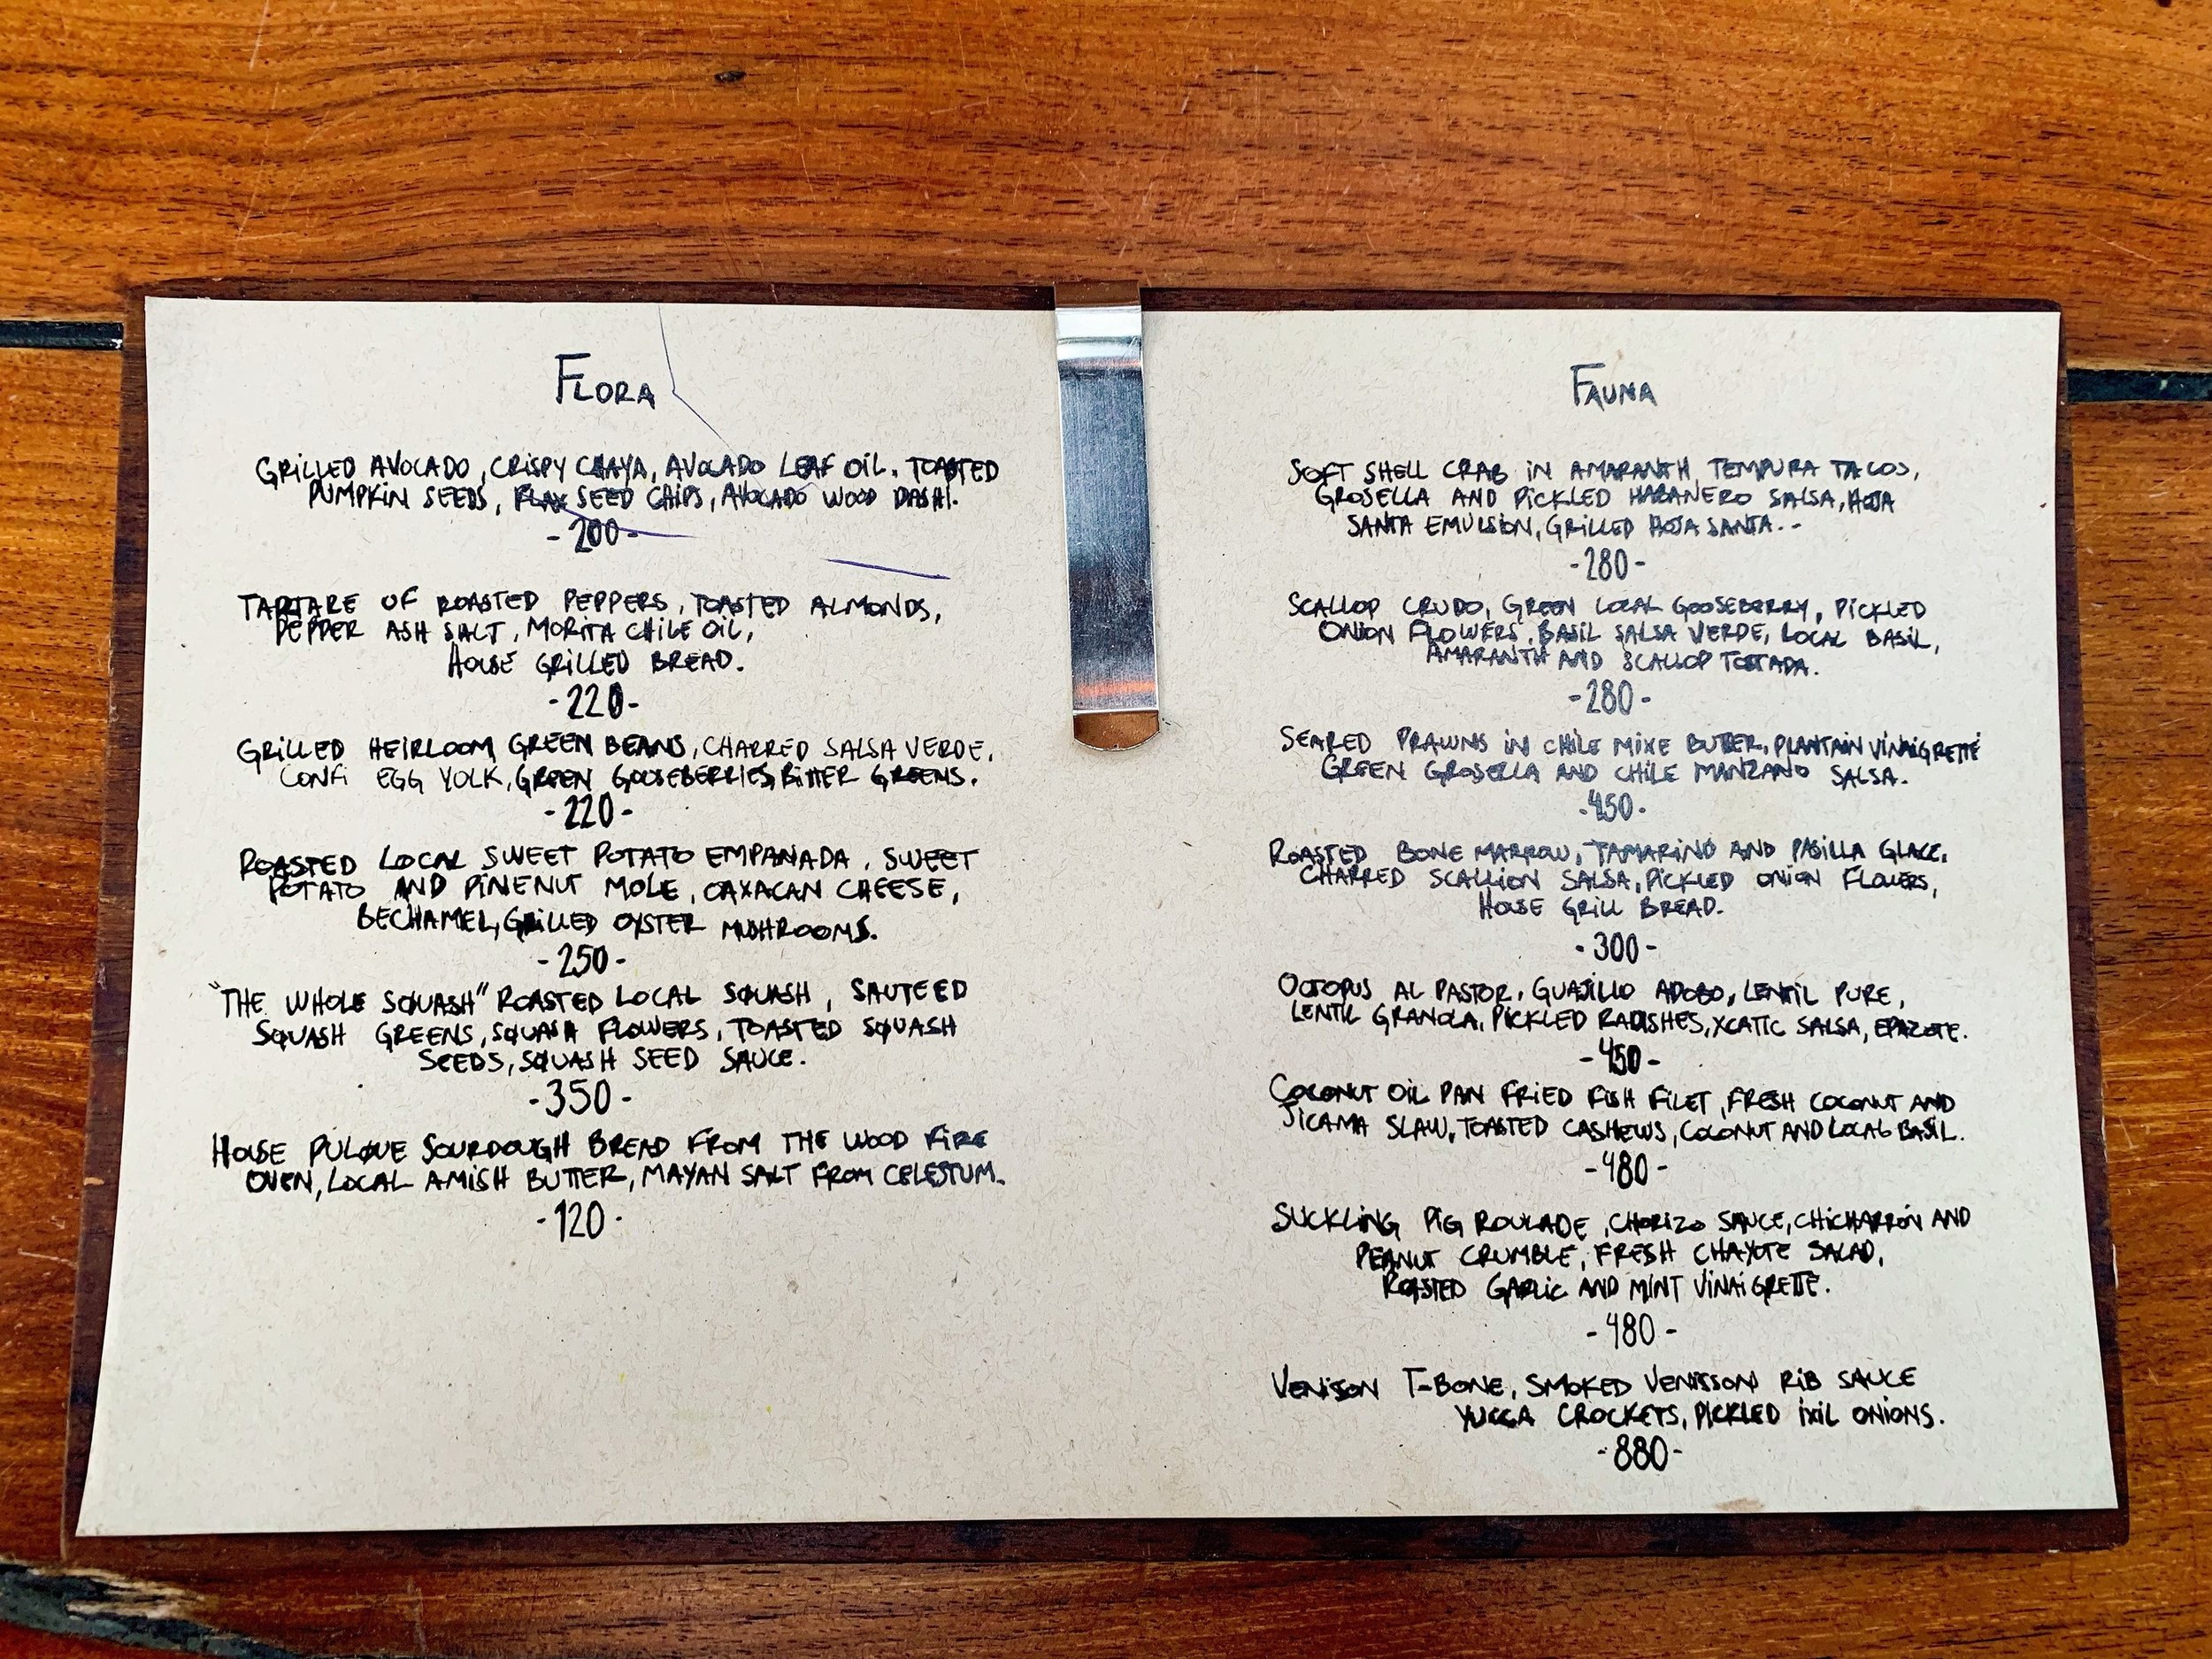 FLORA
GRILLED AVOCADO, CRISPY CHAYA, AVOCADO LEAF OIL. TOASTED
PUMPKIN SEEDS, FLAX SEED CHIPS, AVOCADO WOOD DASHI.
-200-
TARTARE OF ROASTED PEPPERS, TOASTED ALMONDS,
PEPPER ASH SALT, MORITA CHILE OIL,
HOUSE GRILLED BREAD.
-220-
GRILLED HEIRLOOM GREEN BEANS, CHARRED SALSA VERDE,
CONFI EGG YOLK, GREEN GOOSEBERRIES, BITTER GREENS.
-220-
ROASTED LOCAL SWEET POTATO EMPANADA, SWEET
POTATO AND PINENUT MOLE, OAXACAN CHEESE,
BECHAMEL, GRILLED OYSTER MUSHROOMS.
-250-
"THE WHOLE SQUASH" ROASTED LOCAL SQUASH, SAUTEED
SQUASH GREENS, SQUASH FLOWERS, TOASTED SQUASH
SEEDS, SQUASH SEED SAUCE.
-350-
HOUSE PULQUE SOURDOUGH BREAD FROM THE WOOD FIRE
OVEN, LOCAL AMISH BUTTER, MAYAN SALT FROM CELESTUM.
-120-
FAUNA
SOFT SHELL CRAB IN AMARANTH TEMPURA TACOS,
GROSELLA AND PICKLED HABANERO SALSA, HOJA
SANTA EMULSION, GRILLED HOJA SANTA.--
-280-
SCALLOP CRUDO, GREEN LOCAL GOOSEBERRY, PICKLED
ONION FLOWERS, BASIL SALSA VERDE, LOCAL BASIL,
AMARANTH AND SCALLOP TOSTADA.
-280-
SEARED PRAWNS IN CHILE MIXE BUTTER, PLANTAIN VINAIGRETTE
GREEN GROSELLA AND CHILE MANZANO SALSA.
-450-
ROASTED BONE MARROW, TAMARIND AND PASILLA GLACE,
CHARRED SCALLION SALSA, PICKLED ONION FLOWERS,
HOUSE GRILL BREAD.
-300-
OCTOPUS AL PASTOR, GUAJILLO ADOBO, LENTIL PURE,
LENTIL GRANOLA, PICKLED RADISHES, XCATIC SALSA, EPAZOTE.
-450-
COCONUT OIL PAN FRIED FISH FILET, FRESH COCONUT AND
JICAMA SLAW, TOASTED CASHEWS, COCONUT AND LOCAL BASIL.
-480-
SUCKLING PIG ROULADE, CHORIZO SAUCE, CHICHARRÓN AND
PEANUT CRUMBLE, FRESH CHAYOTE SALAD,
ROASTED GARLIC AND MINT VINAIGRETTE.
-480-
VENISON T-BONE, SMOKED VENISSON RIB SAUCE
YUCCA CROCKETS, PICKLED IXIL ONIONS.
-880-